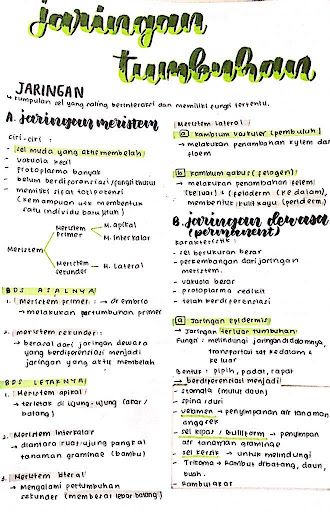 jaringan
tumbuhan
JARINGAN
↳ kumpulan sel yang saling berinteraksi dan memiliki fungsi tertentu.
A. jaringan meristem
ciri-ciri :
- sel muda yang aktif membelah
- vakuola kecil
- protoplasma banyak
- belum berdiferensiasi/fungsi khusus
- memiliki sifat totipotensi
(kemampuan utk membentuk
satu individu baru/utuh)
Meristem
Meristem
Primer
M. apikal
M. Interkalar
Meristem
sekunder
M. Lateral
BDS ASALNYA
1. Meristem primer : → dr embrio
→ melakukan pertumbuhan primer
2. meristem sekunder :
→ berasal dari jaringan dewasa
yang berdiferensiasi menjadi
jaringan yang aktif membelah
BDS LETAKNYA
1. Meristem apikal
→ terletak di ujung-ujung (akar/
batang)
2. Meristem Interkalar
→ diantara ruas/ujung pangkal
tanaman graminae (bambu)
3. Meristem lateral
→ Mengalami pertumbuhan
sekunder (memberai lebar batang)
Meristem lateral
a kambium vaskuler (pembuluh)
→ melakukan penambahan xylem dan
floem
b kambium gabus (felogen)
→ melakukan penambahan felem
(keluar) & (feloderm (ke dalam),
membentuk kulit kayu (periderm).
B. jaringan dewasa
(permanent)
karakteristik :
- sel berukuran besar
- perkembangan dari jaringan
meristem.
- vakuola besar
- protoplasma sedikit
- telah berdiferensiasi
a Jaringan epidermis
→ Jaringan terluar tumbuhan
Fungsi : melindungi jaringan didalamnya,
transportasi zat kedalam &
ke luar
Bentuk : pipih, padat, rapat
→ berdiferensiasi menjadi
- stomata (mulut daun)
- spina (duri
- velamen → penyimpanan air tanaman
anggrek
- sel kipas / bulliform → penyimpan
air tanaman graminae
- sel kersik → untuk melindungi
- Trikoma → rambut dibatang, daun,
buah.
- Rambut akar